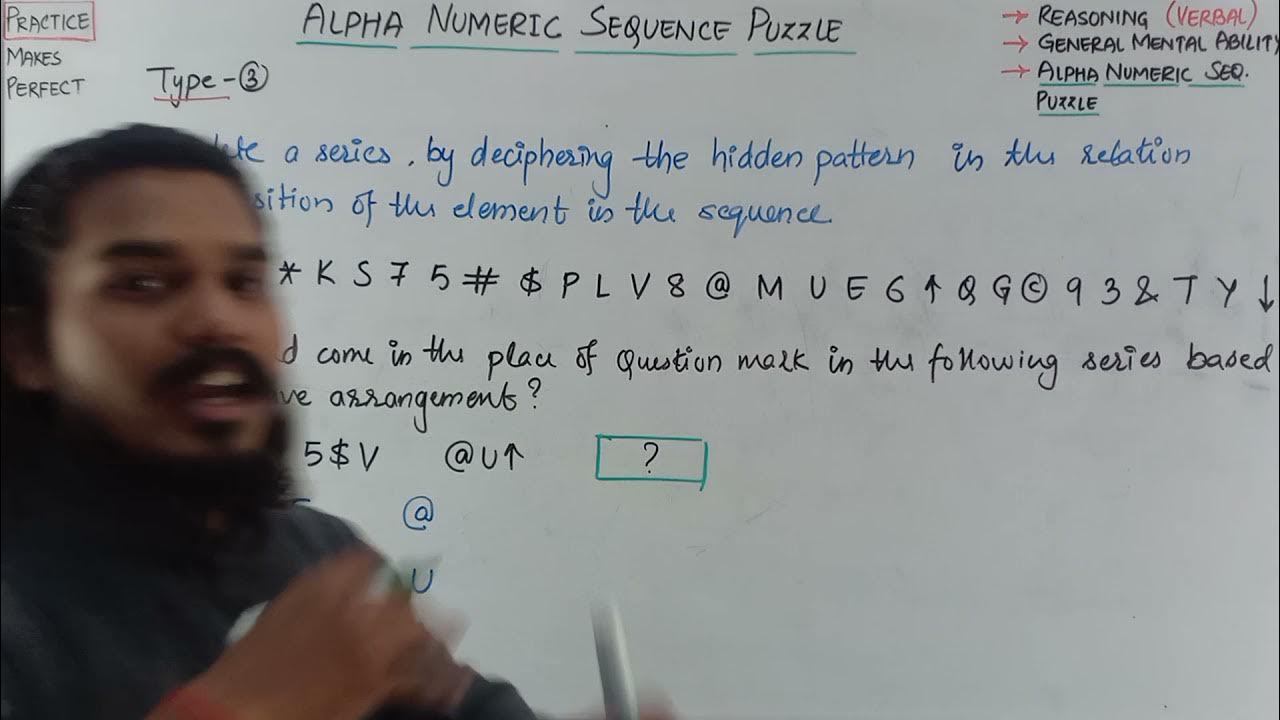 PRACTICE
MAKES
PERFECT
ALPHA NUMERIC SEQUENCE PUZZLE
→ REASONING (VERBAL)
→ GENERAL MENTAL ABILITY
→ ALPHA NUMERIC SEQ.
PUZZLE
Type-③
a series, by deciphering the hidden pattern in the relation
of the element in the sequence
* K S 7 5 # $ P L V 8 @ M U E 6 ↑ Q G © 9 3 & T Y ↓
come in the place of question mark in the following series based
arrangement?
5$V @U↑ ?
@
U